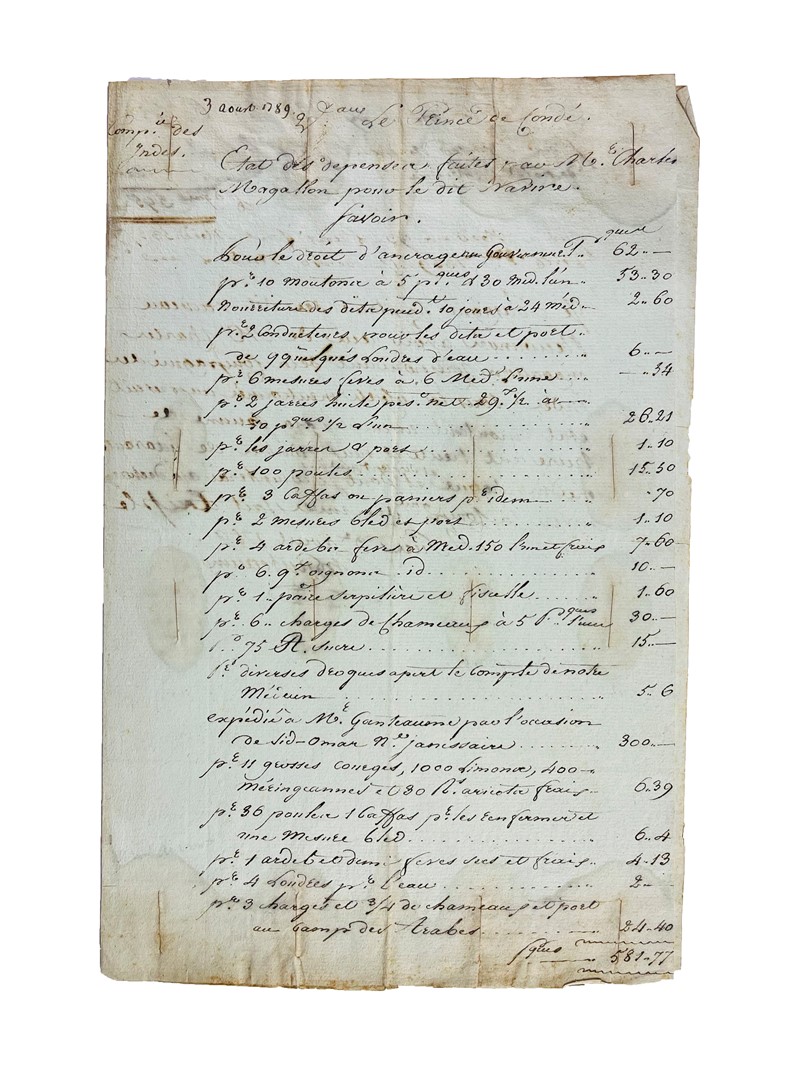 3 aoust 1789.
Le Prince de Condé.
Comp.ie des
Indes.
Etat des depenses faites au M.r Charles
Magallon pour le dit Navire.
Savoir.
Pour le droit d'ancrage au Gouverneur 62..—
p.r 10 moutons à 5 p. 30 Med. l'un 53..30
Nourriture des dits pend.t 10 jours à 24 Méd.. 2..60
p.r 2 Conducteurs pour les dits et port
de 9 Londres d'eau 6..—
p.r 6 mesures feves à 6 Med. l'une —..34
p.r 2 jarres huile pes.t net 29 1/2 a
30 1/2 l'un 26..21
p.r les jarres & port 1..10
p.r 100 poules 15..50
p.r 3 Caffas ou paniers p.r idem ..70
p.r 2 mesures bled et port 1..10
p.r 4 ardebs feves à Med. 150 l'un et frais 7..60
p.r 6 q.x oignons id 10..—
p.r 1.. paire serpiliere et fisselle 1..60
p.r 6.. charges de Chameaux à 5 l'une 30..—
75 sucre 15..—
p.r diverses drogues apert le Compte de notre
Médecin 5..6
expédié à M.r Ganteaume par l'occasion
de Sid-Omar N.re janissaire 300..—
p.r 11 grosses courges, 1000 limons, 400
Méringeannes et 30 aricots frais.. 6..39
p.r 36 poules 1 Caffas p.r les Enfermer et
une Mesure bled 6..4
p.r 1 ardeb et demi feves secs et frais.. 4..13
p.r 4 Londres p.r l'eau 2..
p.r 3 charges et 3/4 de chameaux et port
au Camp des Arabes 24..40
581..77